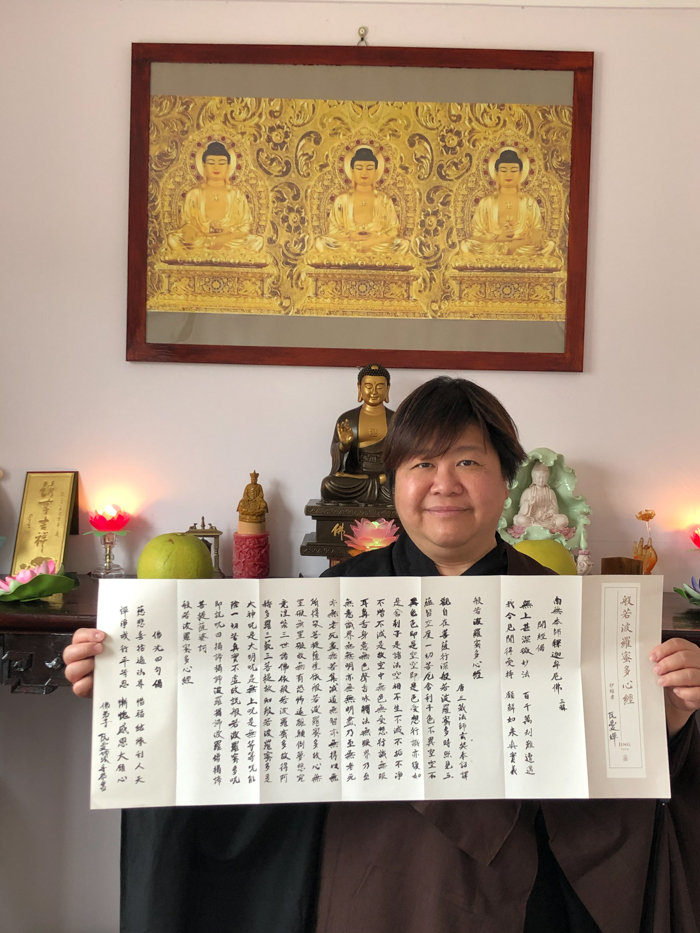 諸事吉祥
佛
般若波羅蜜多心經
抄經者
JING
南無本師釋迦牟尼佛 三稱
開經偈
無上甚深微妙法 百千萬劫難遭遇
我今見聞得受持 願解如來真實義
般若波羅蜜多心經
唐三藏法師玄奘奉詔譯
觀自在菩薩行深般若波羅蜜多時照見五
蘊皆空度一切苦厄舍利子色不異空空不
異色色即是空空即是色受想行識亦復如
是舍利子是諸法空相不生不滅不垢不淨
不增不減是故空中無色無受想行識無眼
耳鼻舌身意無色聲香味觸法無眼界乃至
無意識界無無明亦無無明盡乃至無老死
亦無老死盡無苦集滅道無智亦無得以無
所得故菩提薩埵依般若波羅蜜多故心無
罣礙無罣礙故無有恐怖遠離顛倒夢想究
竟涅槃三世諸佛依般若波羅蜜多故得阿
耨多羅三藐三菩提故知般若波羅蜜多是
大神咒是大明咒是無上咒是無等等咒能
除一切苦真實不虛故說般若波羅蜜多咒
即說咒曰揭諦揭諦波羅揭諦波羅僧揭諦
菩提薩婆訶
般若波羅蜜多心經
佛光四句偈
慈悲喜捨遍法界 惜福結緣利人天
禪淨戒行平等忍 慚愧感恩大願心
佛弟子